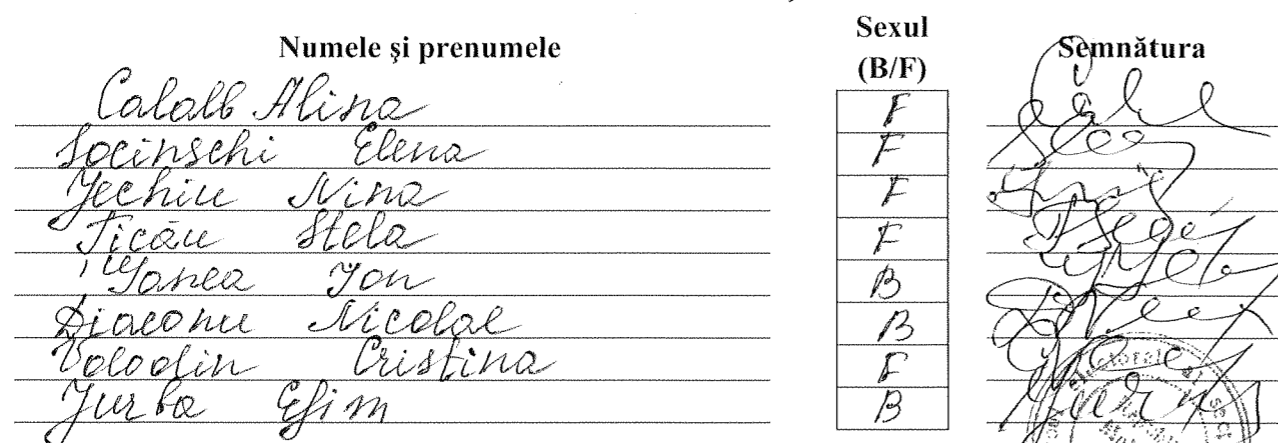 Numele şi prenumele Sexul (B/F) Semnătura
Calalb Alina F
Socinschi Elena F
Jechiu Nina F
Ticău Stela F
Ion B
Diaconu Nicolae B
Volodin Cristina F
Jurba Efim B